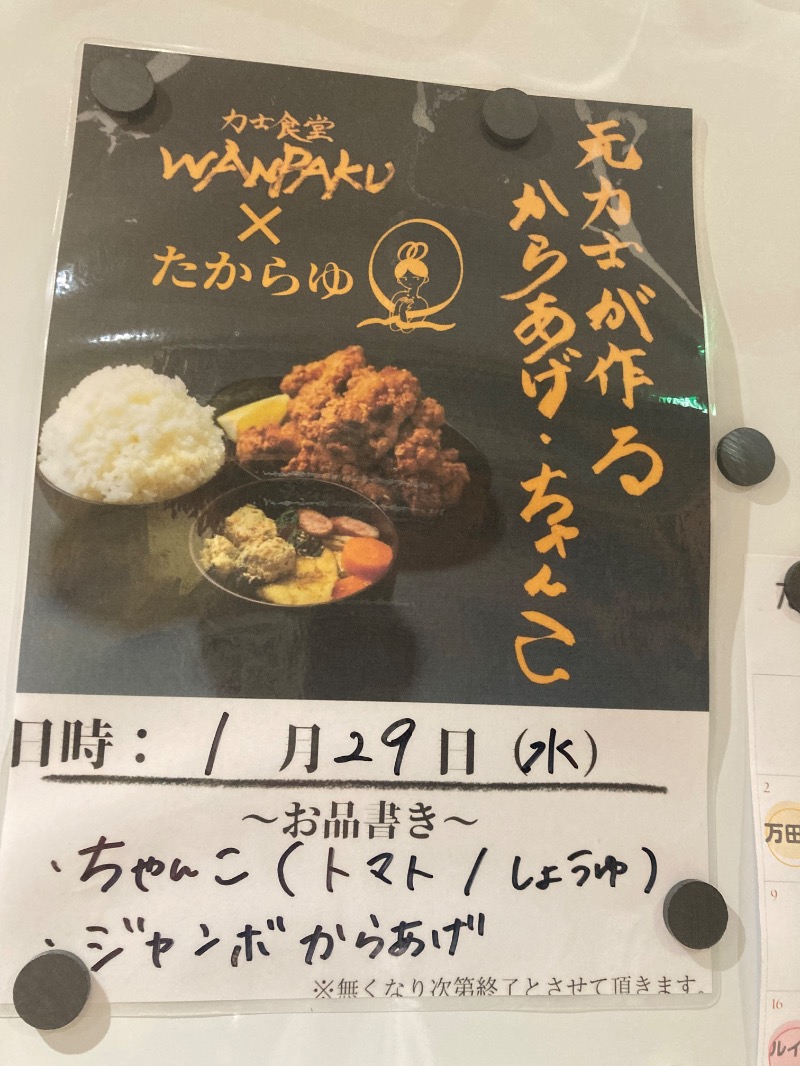 力士食堂
WANPAKU
×
たからゆ
元力士が作る
からあげ・ちゃんこ
日時：1月29日（水）
～お品書き～
・ちゃんこ（トマト/しょうゆ）
・ジャンボからあげ
※無くなり次第終了とさせて頂きます。
2
万田
9
16
ルイ